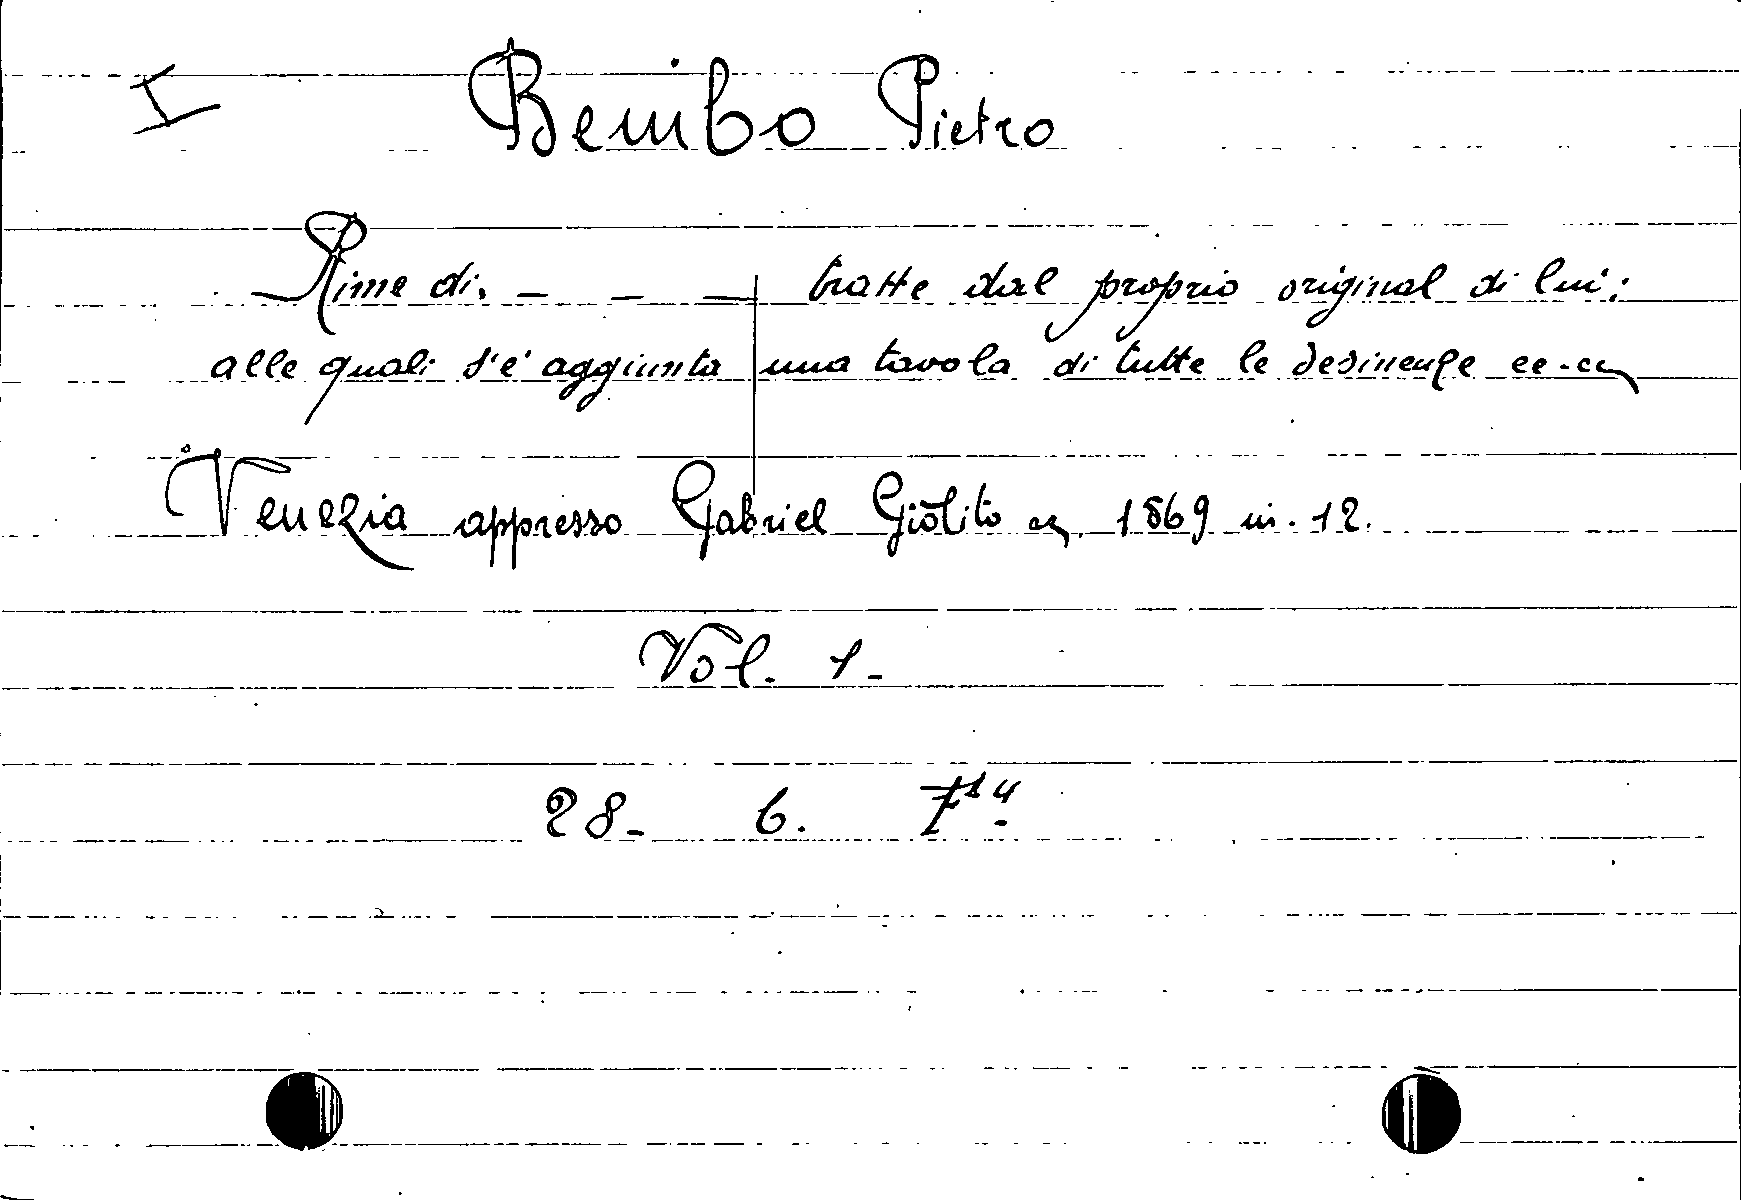 I Bembo Pietro
Rime di. _ _ _ tratte dal proprio original di lui;
alle quali s'è aggiunta una tavola di tutte le desinenze ec. ec.
Venezia appresso Gabriel Giolito ec. 1569 in. 12.
Vol. 1-
28- 6. 7¹⁴.